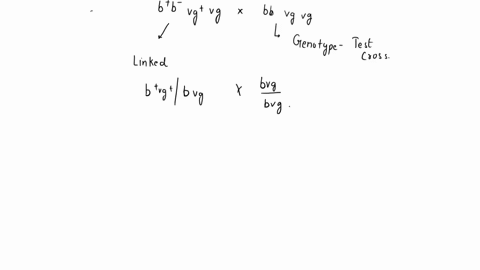 b⁺b⁻ vg⁺ vg × bb vg vg
Genotype- Test
Cross.
Linked
b⁺vg⁺/b vg × bvg
bvg.